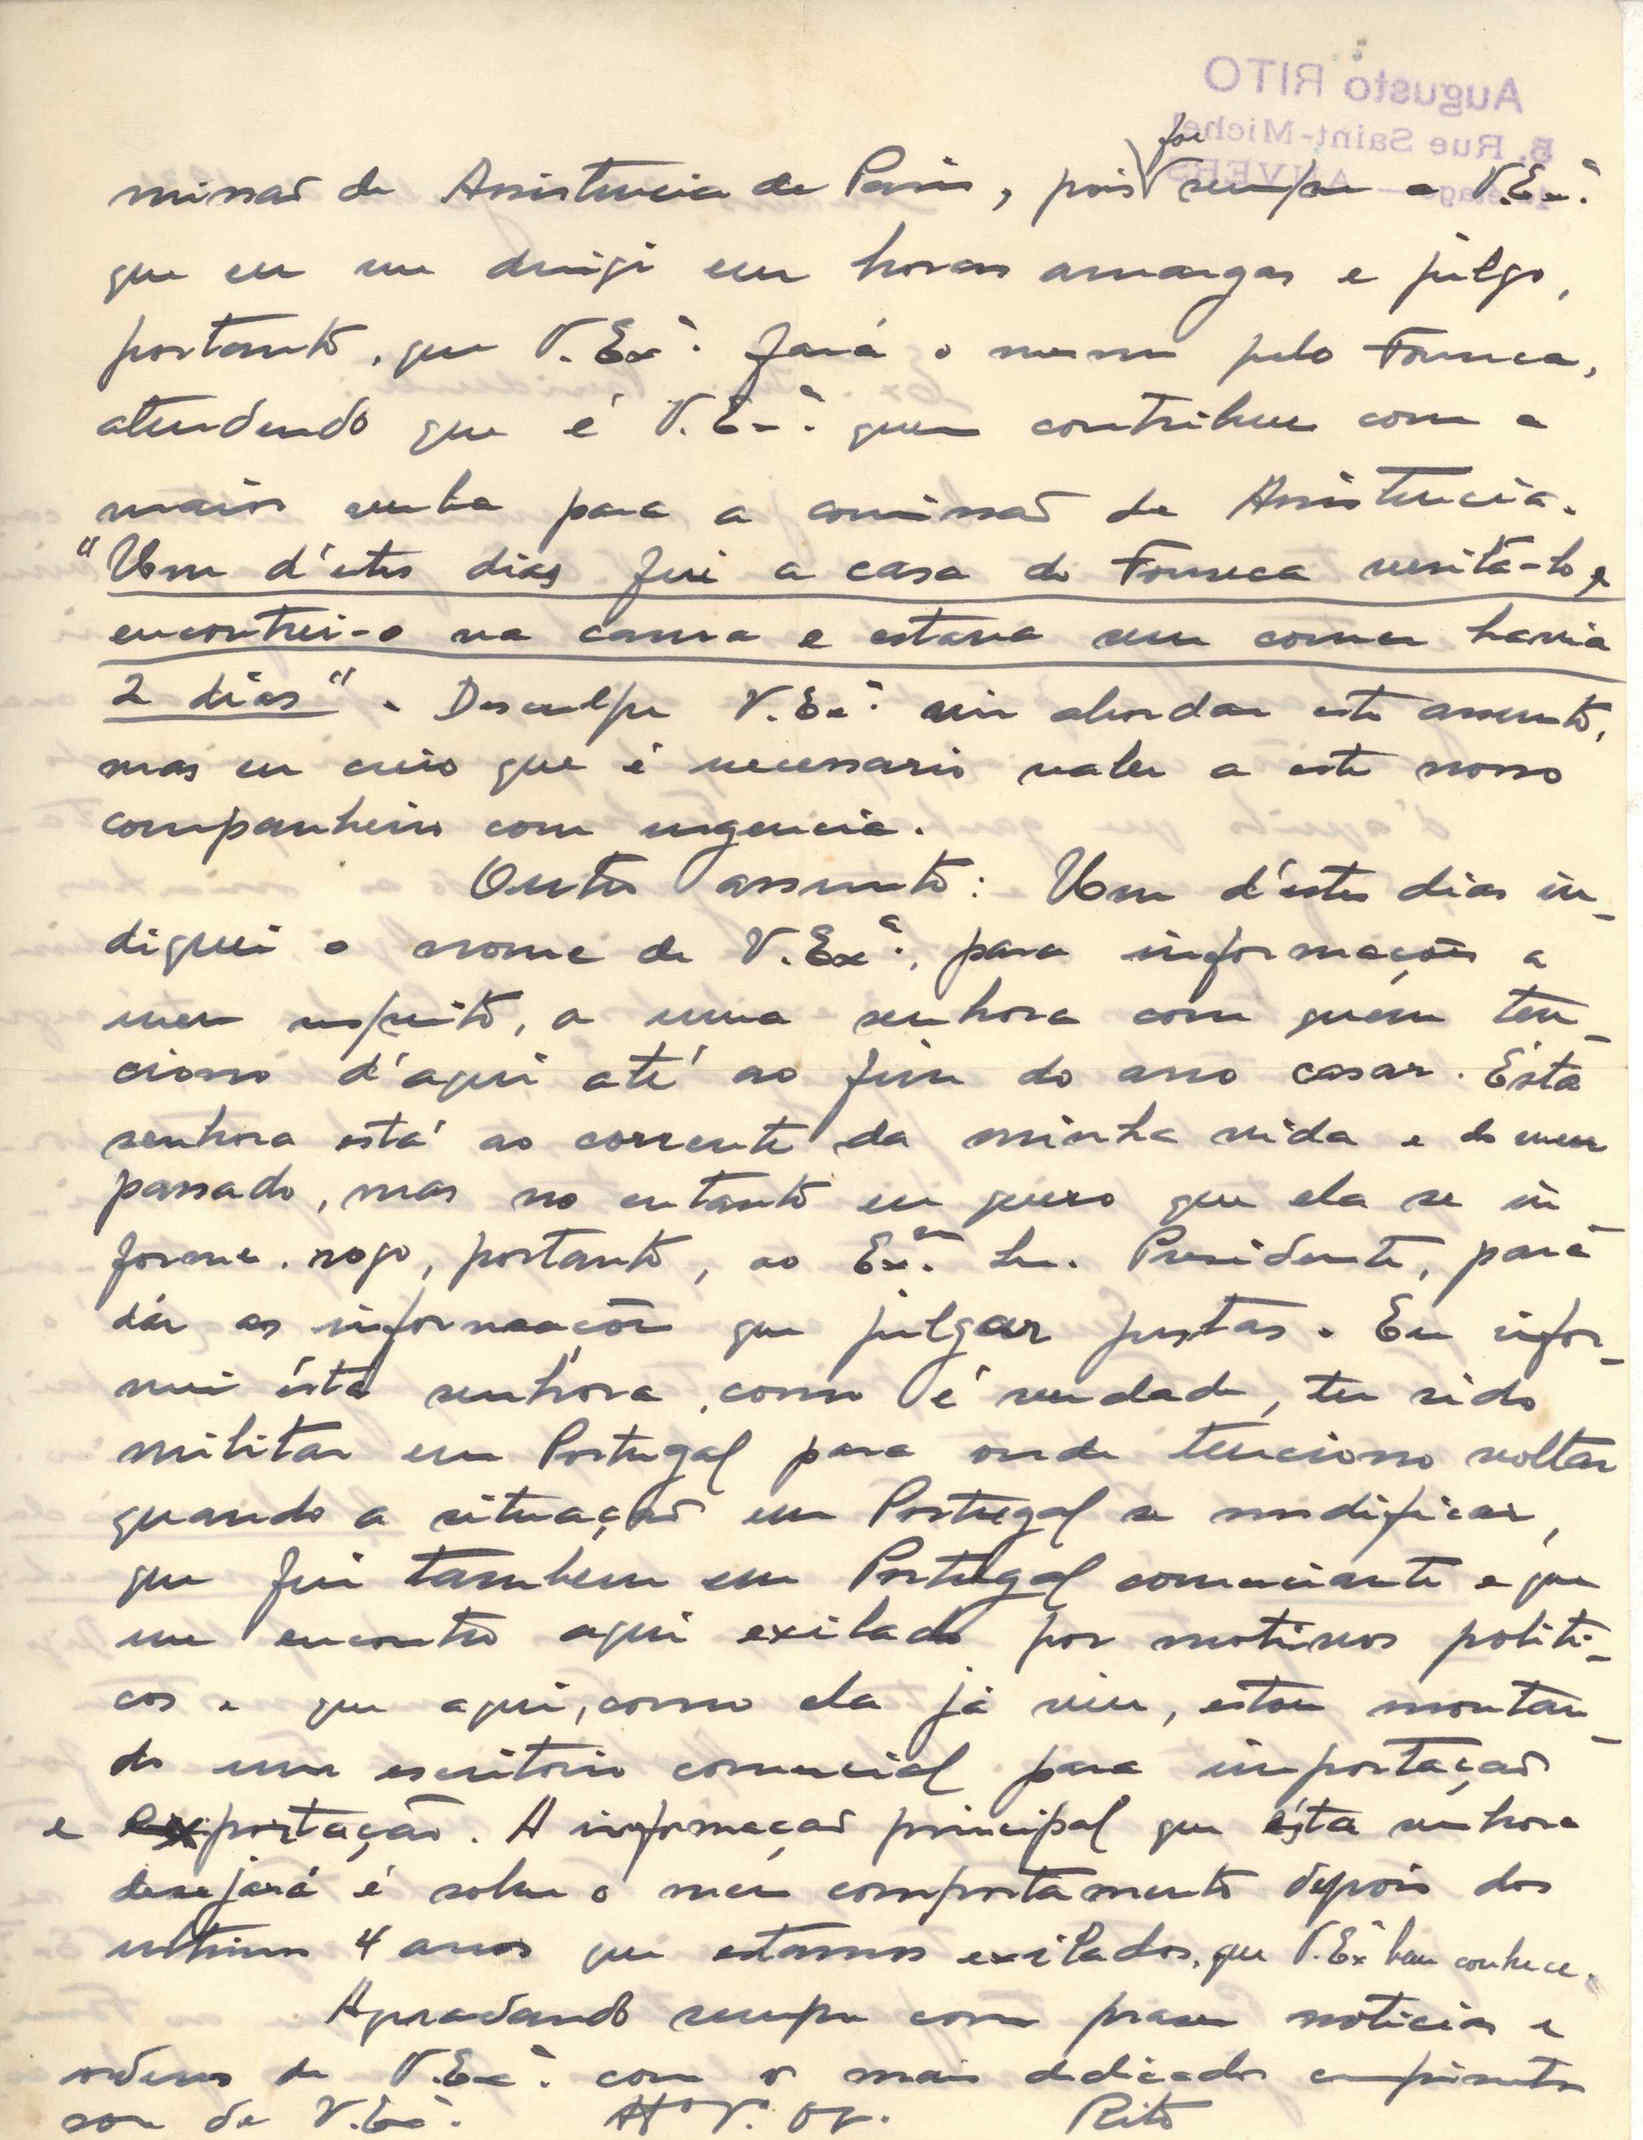 Augusto RITO
B, Rue Saint-Michel
ANVERS
foi
missão de Assistencia de Paris, pois sempre a V. Exª.
que eu me dirigi em horas amargas e julgo,
portanto, que V. Exª. fará o mesmo pelo Fonseca,
atendendo que é V. Exª. quem contribue com a
maior verba para a comissão de Assistencia.
"Um d'estes dias fui a casa do Fonseca visitá-lo e
encontrei-o na cama e estava sem comer havia
2 dias". Desculpe V. Exª. vir abordar este assunto,
mas eu creio que é necessario valer a este nosso
companheiro com urgencia.
Outro assunto: Um d'estes dias in-
diquei o nome de V. Exª., para informações a
meu respeito, a uma senhora com quem ten-
ciono d'aqui até ao fim do ano casar. Ésta
senhora está ao corrente da minha vida e do meu
passado, mas no entanto eu quero que ela se in-
forme. rogo, portanto, ao Exmº. Sr. Presidente, para
dár as informações que julgar justas. Eu infor-
mei ésta senhora, como é verdade, ter sido
militar em Portugal para onde tenciono voltar
quando a situação em Portugal se modificar,
que fui tambem em Portugal comerciante e que
me encontro aqui exilado por motivos politi-
cos e que aqui, como ela já viu, estou montan-
do um escritorio comercial para importação
e exportação. A informação principal que ésta senhora
desejará é sobre o meu comportamento depois dos
ultimos 4 anos que estamos exilados, que V. Exª bem conhece.
Agradando sempre com prazer noticias e
ordens de V. Exª. com o mais dedicado cumprimento
sou de V. Exª. Atº Vº. Or. Rito